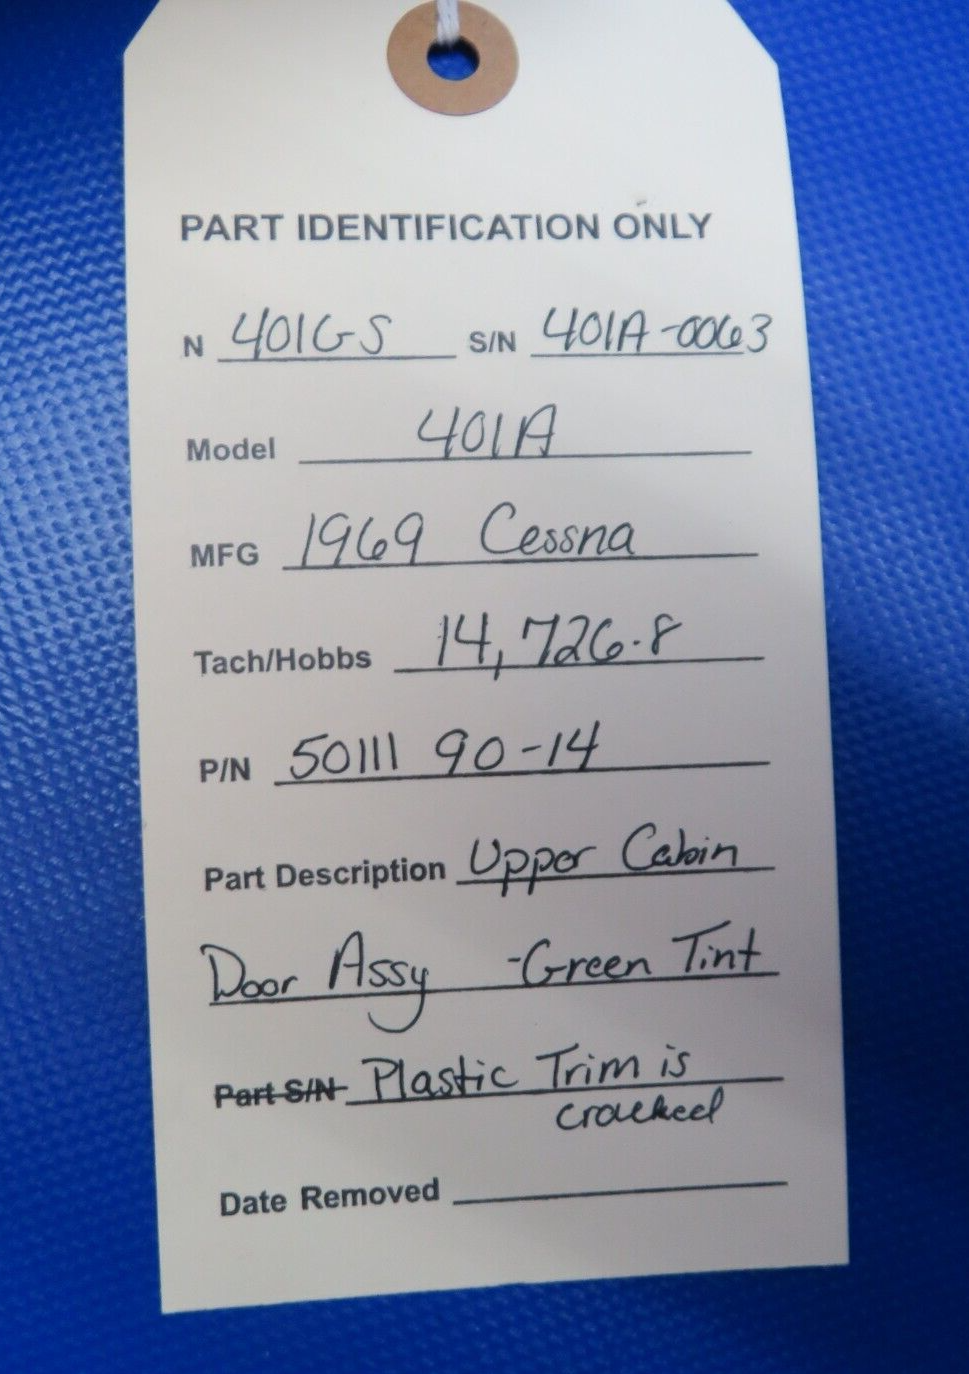 PART IDENTIFICATION ONLY
N 401GS S/N 401A-0063
Model 401A
MFG 1969 Cessna
Tach/Hobbs 14,726.8
P/N 50111 90-14
Part Description Upper Cabin
Door Assy -Green Tint
Part S/N Plastic Trim is
cracked
Date Removed